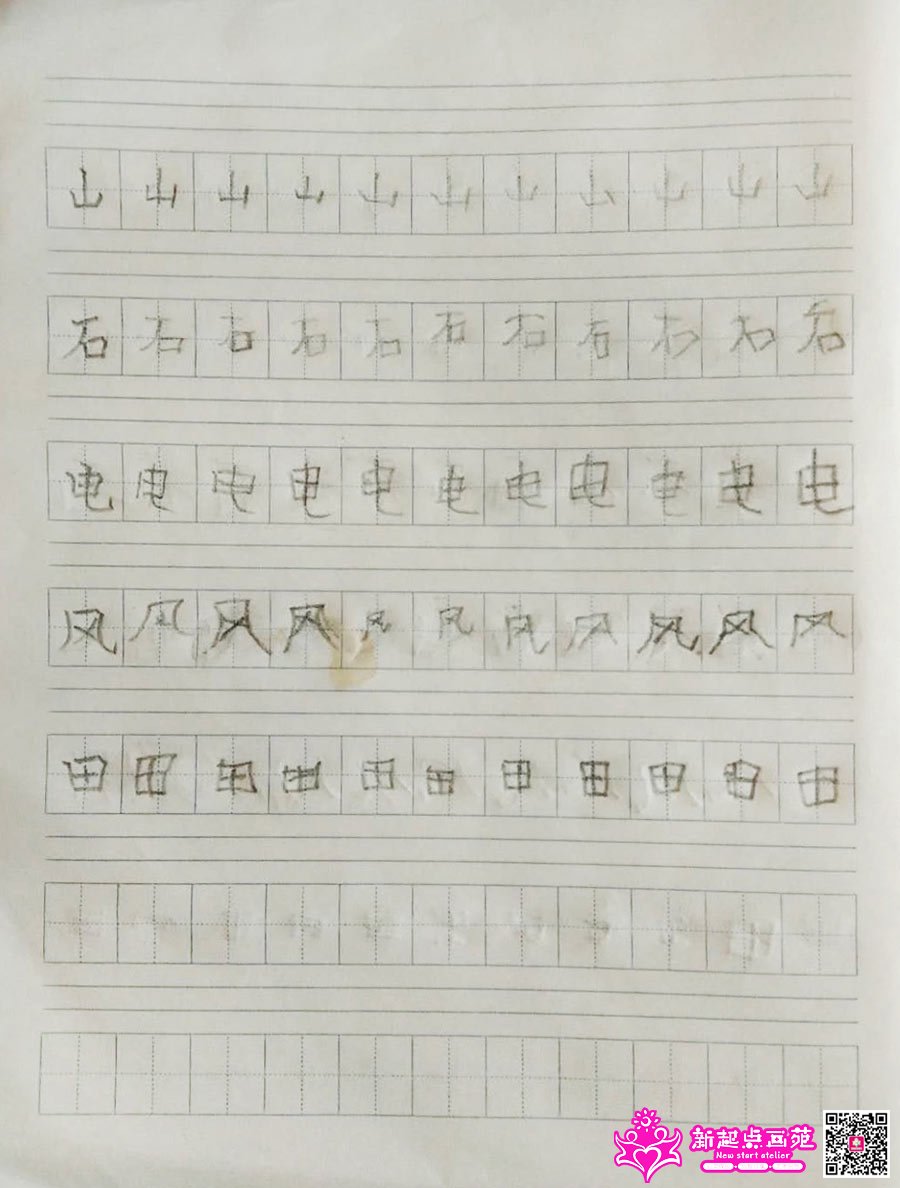 山山山山山山山山山山山
石石石石石石石石石石石
电电电电电电电电电电电
风风风风风风风风风风风
田田田田田田田田田田田
新起点画苑
New start atelier